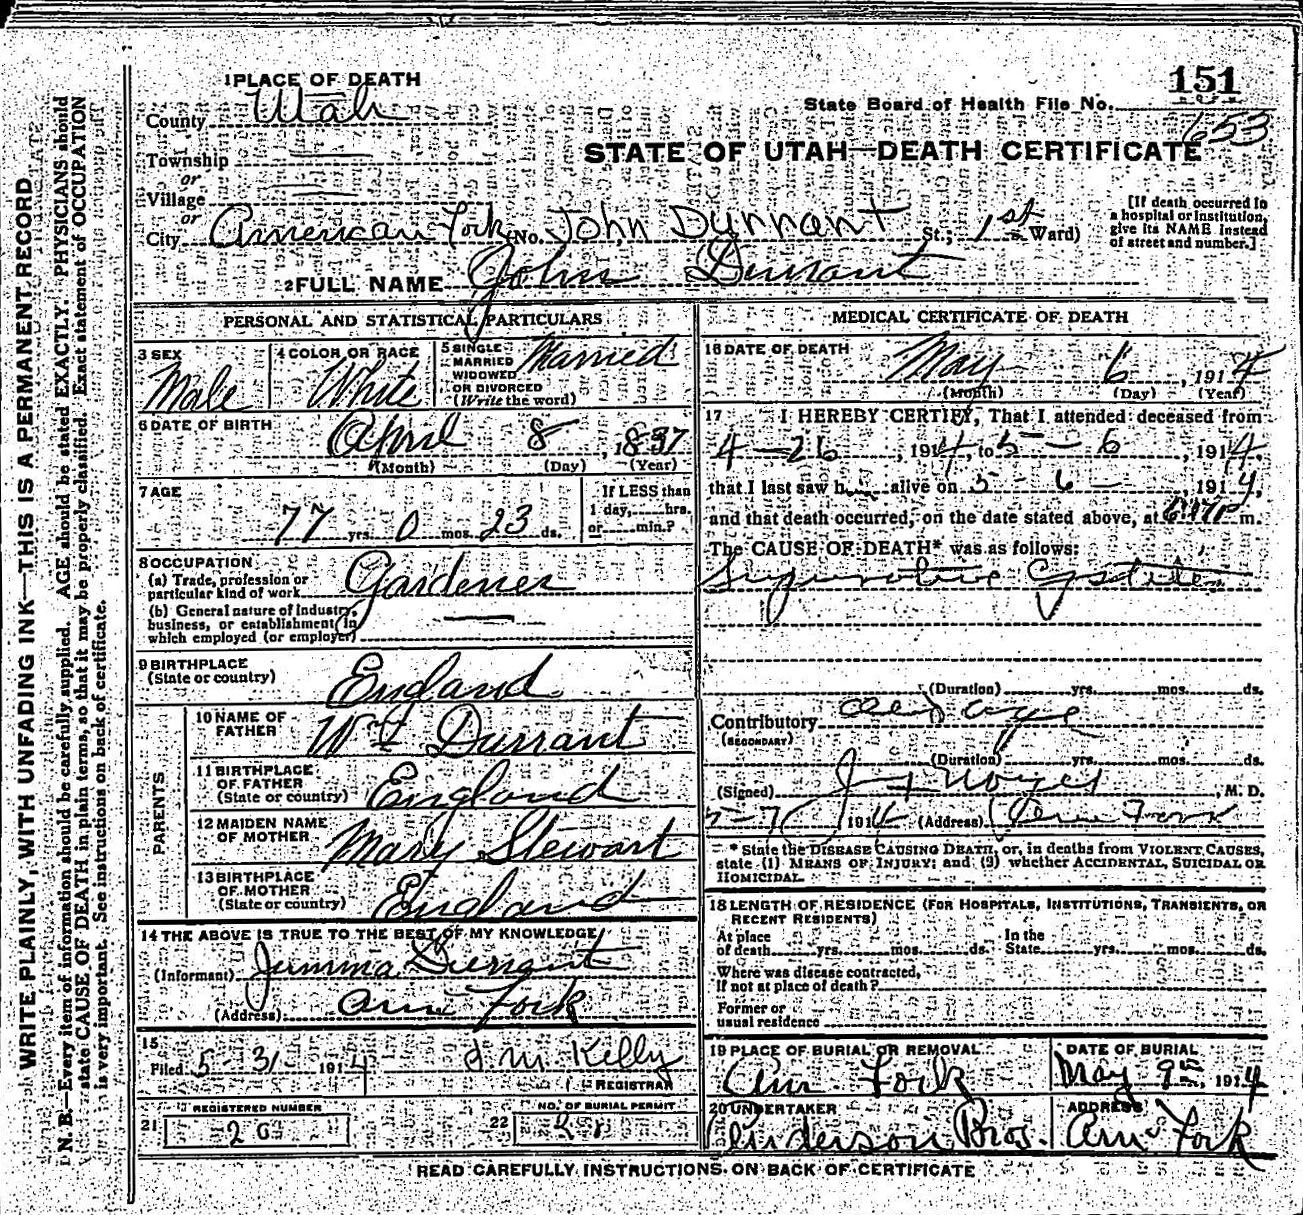 151
1 PLACE OF DEATH
State Board of Health File No.
County Utah
653
STATE OF UTAH—DEATH CERTIFICATE
Township
or
Village
or
City American Fork No. John Durrant St.; 1st Ward)
[If death occurred in
a hospital or institution,
give its NAME instead
of street and number.]
2 FULL NAME John Durrant
PERSONAL AND STATISTICAL PARTICULARS
3 SEX
Male
4 COLOR OR RACE
White
5 SINGLE
MARRIED
WIDOWED
OR DIVORCED
(Write the word)
Married
6 DATE OF BIRTH
April 8, 1837
(Month) (Day) (Year)
7 AGE
77 yrs. 0 mos. 23 ds.
If LESS than
1 day,......hrs.
or......min.?
8 OCCUPATION
(a) Trade, profession or
particular kind of work
Gardener
(b) General nature of Industry,
business, or establishment in
which employed (or employer)
9 BIRTHPLACE
(State or country)
England
10 NAME OF
FATHER
Wm Durrant
11 BIRTHPLACE
OF FATHER
(State or country)
England
12 MAIDEN NAME
OF MOTHER
Mary Stewart
13 BIRTHPLACE
OF MOTHER
(State or country)
England
PARENTS
14 THE ABOVE IS TRUE TO THE BEST OF MY KNOWLEDGE
(Informant) Jemima Durrant
(Address) Am Fork
15
Filed 5-31 1914 Kelly
REGISTRAR
21
REGISTERED NUMBER
20
22
NO. OF BURIAL PERMIT
MEDICAL CERTIFICATE OF DEATH
16 DATE OF DEATH
May 6, 1914
(Month) (Day) (Year)
17 I HEREBY CERTIFY, That I attended deceased from
4-26, 1914, to 5-6, 1914,
that I last saw h.... alive on 5-6-, 1914,
and that death occurred, on the date stated above, at m.
The CAUSE OF DEATH* was as follows:
(Duration) yrs. mos. ds.
Contributory Old age
(SECONDARY)
(Duration) yrs. mos. ds.
(Signed) Noyes, M. D.
5-7 1914 (Address) Am Fork
* State the DISEASE CAUSING DEATH, or, in deaths from VIOLENT CAUSES,
state (1) MEANS OF INJURY; and (2) whether ACCIDENTAL, SUICIDAL OR
HOMICIDAL.
18 LENGTH OF RESIDENCE (FOR HOSPITALS, INSTITUTIONS, TRANSIENTS, OR
RECENT RESIDENTS)
At place
of death yrs. mos. ds.
In the
State yrs. mos. ds.
Where was disease contracted,
If not at place of death?
Former or
usual residence
19 PLACE OF BURIAL OR REMOVAL
Am Fork
DATE OF BURIAL
May 9th, 1914
20 UNDERTAKER
Anderson Bros.
ADDRESS
Am Fork
READ CAREFULLY INSTRUCTIONS ON BACK OF CERTIFICATE
WRITE PLAINLY, WITH UNFADING INK—THIS IS A PERMANENT RECORD
N. B.—Every item of information should be carefully supplied. AGE should be stated EXACTLY. PHYSICIANS should
state CAUSE OF DEATH in plain terms, so that it may be properly classified. Exact statement of OCCUPATION
is very important. See instructions on back of certificate.